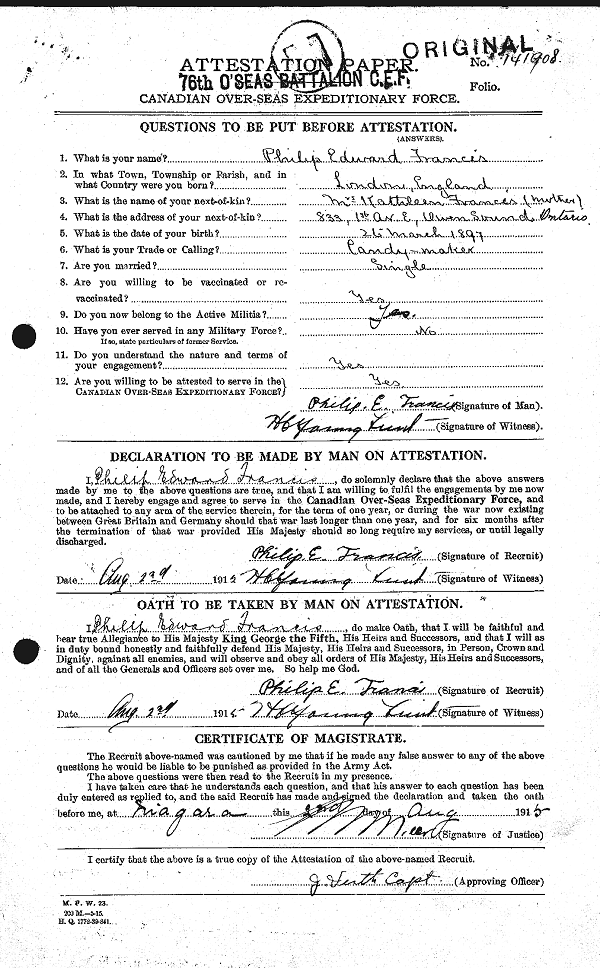 ORIGINAL
ATTESTATION PAPER.
No. 141908.
76th O'SEAS BATTALION C.E.F.
Folio.
CANADIAN OVER-SEAS EXPEDITIONARY FORCE.
QUESTIONS TO BE PUT BEFORE ATTESTATION.
(ANSWERS).
1. What is your name? Philip Edward Francis
2. In what Town, Township or Parish, and in
what Country were you born? London, England
3. What is the name of your next-of-kin? Mrs Kathleen Frances (Mother)
4. What is the address of your next-of-kin? 833, 1st Av. E, Owen Sound Ontario
5. What is the date of your birth? March 1897
6. What is your Trade or Calling? Candy-maker
7. Are you married? Single
8. Are you willing to be vaccinated or re-
vaccinated? Yes
9. Do you now belong to the Active Militia? Yes.
10. Have you ever served in any Military Force? No
If so, state particulars of former Service.
11. Do you understand the nature and terms of
your engagement? Yes
12. Are you willing to be attested to serve in the
CANADIAN OVER-SEAS EXPEDITIONARY FORCE? Yes
Philip. E. Francis (Signature of Man).
Young Lieut (Signature of Witness).
DECLARATION TO BE MADE BY MAN ON ATTESTATION.
I, Philip Edward Francis, do solemnly declare that the above answers
made by me to the above questions are true, and that I am willing to fulfil the engagements by me now
made, and I hereby engage and agree to serve in the Canadian Over-Seas Expeditionary Force, and
to be attached to any arm of the service therein, for the term of one year, or during the war now existing
between Great Britain and Germany should that war last longer than one year, and for six months after
the termination of that war provided His Majesty should so long require my services, or until legally
discharged.
Philip E. Francis (Signature of Recruit)
Date Aug. 2nd 1915 Young Lieut (Signature of Witness)
OATH TO BE TAKEN BY MAN ON ATTESTATION.
I, Philip Edward Francis, do make Oath, that I will be faithful and
bear true Allegiance to His Majesty King George the Fifth, His Heirs and Successors, and that I will as
in duty bound honestly and faithfully defend His Majesty, His Heirs and Successors, in Person, Crown and
Dignity, against all enemies, and will observe and obey all orders of His Majesty, His Heirs and Successors,
and of all the Generals and Officers set over me. So help me God.
Philip E. Francis (Signature of Recruit)
Date Aug. 2nd 1915 Young Lieut (Signature of Witness)
CERTIFICATE OF MAGISTRATE.
The Recruit above-named was cautioned by me that if he made any false answer to any of the above
questions he would be liable to be punished as provided in the Army Act.
The above questions were then read to the Recruit in my presence.
I have taken care that he understands each question, and that his answer to each question has been
duly entered as replied to, and the said Recruit has made and signed the declaration and taken the oath
before me, at Niagara this 2nd day of Aug 1915
(Signature of Justice)
I certify that the above is a true copy of the Attestation of the above-named Recruit.
Capt. (Approving Officer)
M. F. W. 23.
200 M.—5-15.
H. Q. 1772-39-841.